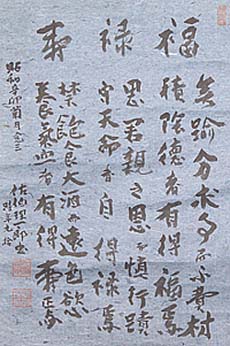 福
無踰分求多不費材
積陰德者有得福焉
祿
思君親之恩慎行蹟
守天命者自得祿焉
壽
禁飽食大酒而遠色慾
養氣血者有得壽焉
昭和辛卯菊月
佐伯理一郎書
時年九十